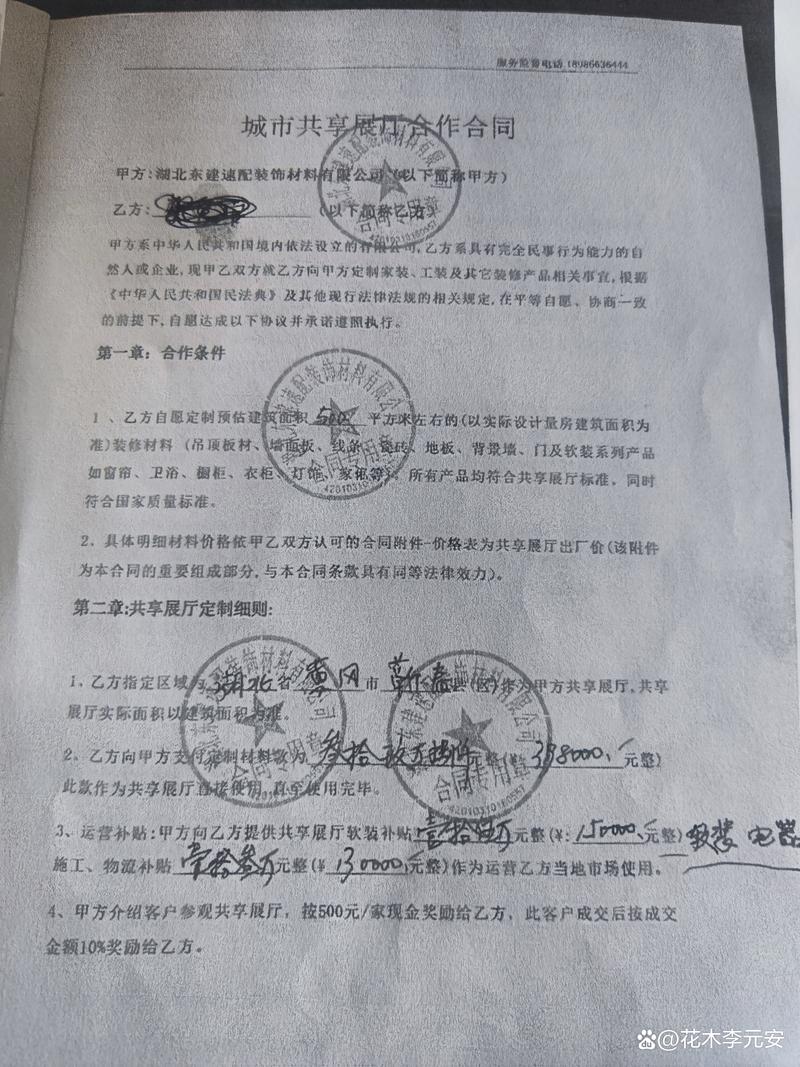 服务监督电话 18986636444
城市共享展厅合作合同
甲方:湖北东建速配装饰材料有限公司(以下简称甲方)
乙方: (以下简称乙方)
甲方系中华人民共和国境内依法设立的有限公司,乙方系具有完全民事行为能力的自
然人或企业,现甲乙双方就乙方向甲方定制家装、工装及其它装修产品相关事宜,根据
《中华人民共和国民法典》及其他现行法律法规的相关规定,在平等自愿、协商一致
的前提下,自愿达成以下协议并承诺遵照执行。
第一章:合作条件
1 、乙方自愿定制预估建筑面积 500 平方米左右的(以实际设计量房建筑面积为
准)装修材料 (吊顶板材、墙面板、线条、瓷砖、地板、背景墙、门及软装系列产品
如窗帘、卫浴、橱柜、衣柜、灯饰、家俱等)。所有产品均符合共享展厅标准。同时
符合国家质量标准。
2、具体明细材料价格依甲乙双方认可的合同附件-价格表为共享展厅出厂价(该附件
为本合同的重要组成部分,与本合同条款具有同等法律效力)。
第二章:共享展厅定制细则:
1、乙方指定区域为 湖北 省 黄冈 市 蕲春 县(区)作为甲方共享展厅,共享
展厅实际面积以建筑面积为准。
2、乙方向甲方支付定制材料款为 叁拾玖万捌仟 元整(¥ 398000 元整)
此款作为共享展厅直接使用,直至使用完毕。
3、运营补贴:甲方向乙方提供共享展厅软装补贴 壹拾伍万 元整(¥: 150000 元整) 软装 电器
施工、物流补贴 壹拾叁万 元整(¥ 130000 元整)作为运营乙方当地市场使用。
4、甲方介绍客户参观共享展厅,按500元/家现金奖励给乙方,此客户成交后按成交
金额10%奖励给乙方。
合同专用章
合同专用章
合同专用章
合同专用章
@花木李元安